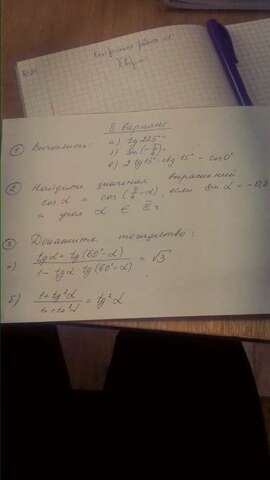 Контрольная работа
II вариант
① Вычислить: а) tg 225°
б) sin(-π/
в) 2 tg 15° · ctg 15° - cos 0°
② Найдите значения выражений
cos α и cos(π/ - α), если sin α = - 0,8
и угол α ∈
③ Докажите тождество:
а) (tg α + tg(60°-α)) / (1 - tg α tg(60°-α)) = √3
б) (1+tg²α) / = tg²α